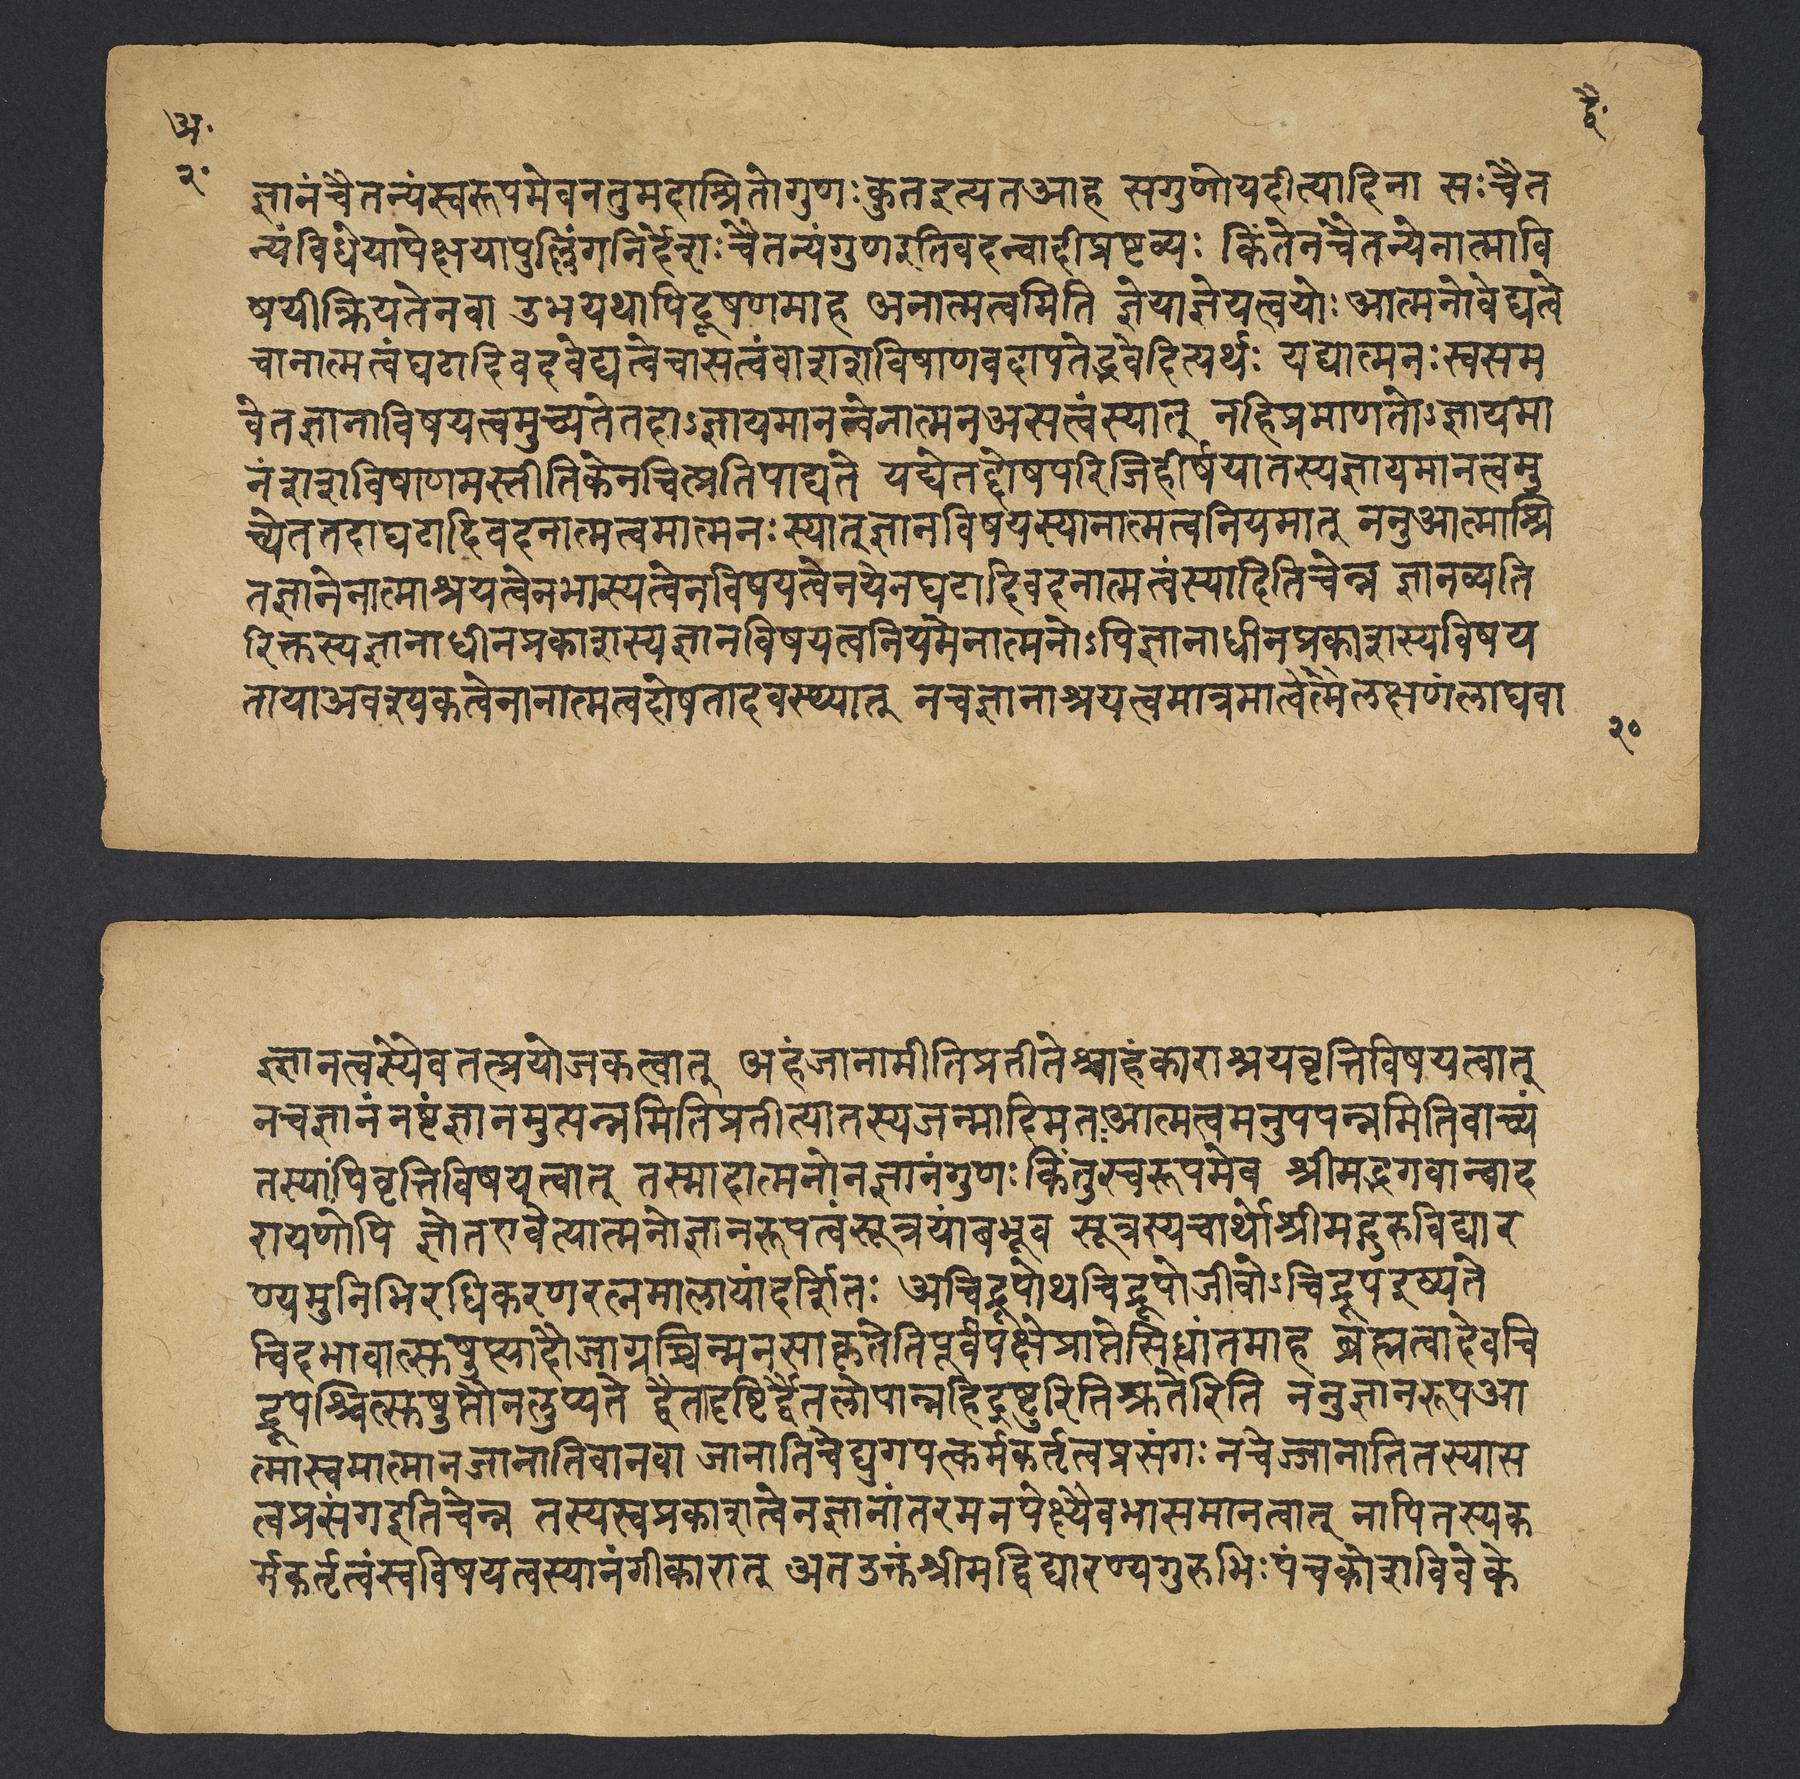 अ॰
द्वै॰
२॰
ज्ञानंचैतन्यंस्वरूपमेवनतुमदाश्रितोगुणःकुतइत्यतआह सगुणोयदीत्यादिना सःचैत
न्यंविधेयापेक्षयापुल्लिंगनिर्देशःचैतन्यंगुणइतिवदन्वादीप्रष्टव्यः किंतेनचैतन्येनात्मावि
षयीक्रियतेनवा उभयथापिदूषणमाह अनात्मत्वमिति ज्ञेयाज्ञेयत्वयोःआत्मनोवेद्यत्वे
चानात्मत्वंघटादिवदवेद्यत्वेचासत्वंवाशशविषाणवदापतेद्भवेदित्यर्थः यद्यात्मनःस्वसम
वेतज्ञानाविषयत्वमुच्यतेतदाऽज्ञायमानत्वेनात्मनअसत्वंस्यात् नहिप्रमाणतोऽज्ञायमा
नंशशविषाणमस्तीतिकेनचित्प्रतिपाद्यते यद्येतद्दोषपरिजिहीर्षयातस्यज्ञायमानत्वमु
च्येततदाघटादिवदनात्मत्वमात्मनःस्यात्ज्ञानविषयस्यानात्मत्वनियमात् ननुआत्माश्रि
तज्ञानेनात्माश्रयत्वेनभास्यत्वेनविषयत्वेनयेनघटादिवदनात्मत्वंस्यादितिचेन्न ज्ञानव्यति
रिक्तस्यज्ञानाधीनप्रकाशस्यज्ञानविषयत्वनियमेनात्मनोऽपिज्ञानाधीनप्रकाशस्यविषय
तायाअवश्यकत्वेनानात्मत्वदोषतादवस्थ्यात् नचज्ञानाश्रयत्वमात्रमात्वेत्मैलक्षणंलाघवा
२०
ज्ज्ञानत्वस्येवतत्प्रयोजकत्वात् अहंजानामीतिप्रतीतेश्चाहंकाराश्रयवृत्तिविषयत्वात्
नचज्ञानंनष्टंज्ञानमुत्पन्नमितिप्रतीत्यातस्यजन्मादिमतःआत्मत्वमनुपपन्नमितिवाच्यं
तस्यापिवृत्तिविषयत्वात् तस्मादात्मनोनज्ञानंगुणःकिंतुस्वरूपमेव श्रीमद्भगवान्बाद
रायणोपि ज्ञोतएवेत्यात्मनोज्ञानरूपत्वंसूत्रयांबभूव सूत्रस्यचार्थोश्रीमद्गुरुविद्यार
ण्यमुनिभिरधिकरणरत्नमालायांदर्शितः अचिद्रूपोथचिद्रूपोजीवोऽचिद्रूपइष्यते
चिदभावात्सुषुप्त्यादौजाग्रच्चिन्मनसाकृतेतिपूर्वपक्षेप्राप्तेसिध्दांतमाह ब्रह्मत्वादेवचि
द्रूपश्चित्सुषुप्तौनलुप्यते द्वैतादृष्टिर्द्वैतलोपान्नहिद्रष्टुरितिश्रुतेरिति ननुज्ञानरूपआ
त्मास्वमात्मानजानातिवानवा जानातिचेद्युगपत्कर्मकर्तृत्वप्रसंगः नचेज्जानातितस्यास
त्वप्रसंगइतिचेन्न तस्यस्वप्रकाशत्वेनज्ञानांतरमनपेक्ष्यैवभासमानत्वात् नापितस्यक
र्मकर्तृत्वंस्वविषयत्वस्यानंगीकारात् अतउक्तंश्रीमद्विद्यारण्यगुरुभिःपंचकोशविवेके